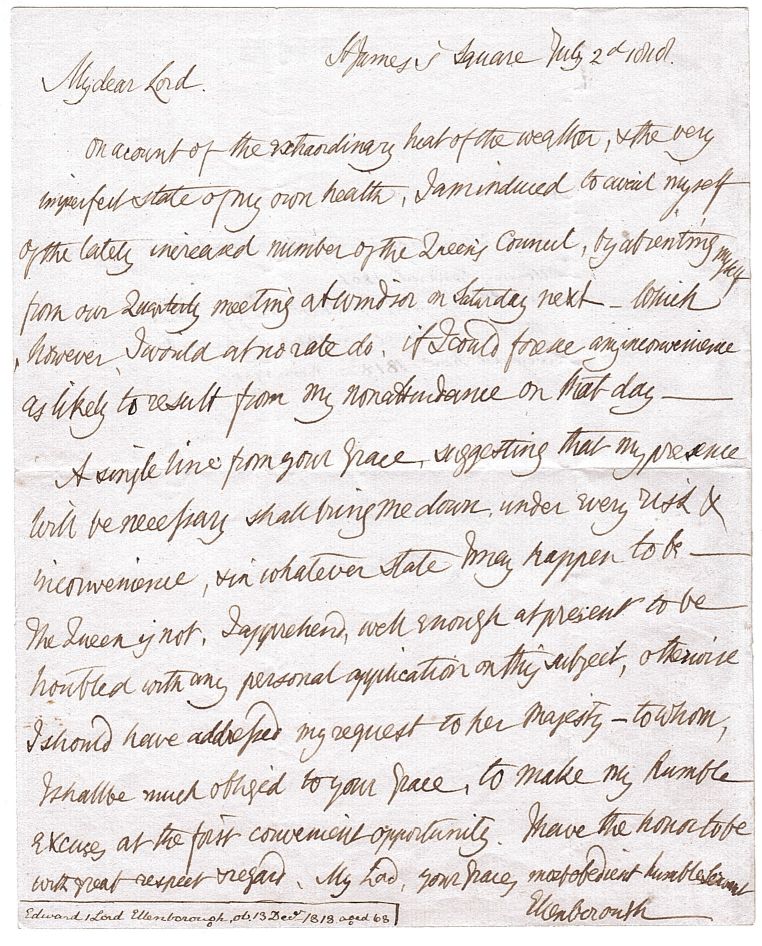 St James's Square July 2d 1818.
My dear Lord.
On acount of the extraordinary heat of the weather, & the very
imperfect state of my own health, I am induced to avail myself
of the lately increased number of the Queen's Council, by absenting myself
from our Quarterly meeting at Windsor on Saturday next – Which
however, I would at no rate do, if I could foresee any inconvenience
as likely to result from my nonattendance on that day —
A single line from your Grace, suggesting that my presence
will be necessary shall bring me down, under every risk &
inconvenience, & in whatever state I may happen to be —
The Queen is not, I apprehend, well enough at present to be
troubled with any personal application on this subject, otherwise
I should have addressed my request to her Majesty – to whom,
I shall be much obliged to your Grace, to make my humble
Excuses at the first convenient opportunity. I have the honor to be
with great respect & regard. My Lord, your Graces most obedient humble Servant
Ellenborough
Edward 1 Lord Ellenborough, ob. 13 Decr 1818. aged 68